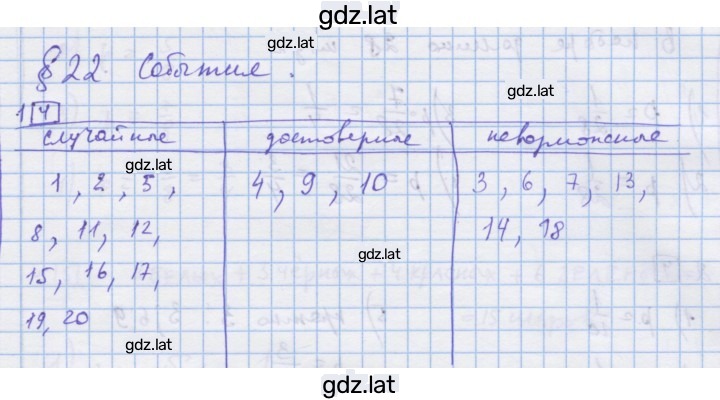 gdz.lat
gdz.lat
§22. События.
gdz.lat
1 4
случайные достоверные невозможные
gdz.lat
1, 2, 5, 4, 9, 10 3, 6, 7, 13,
8, 11, 12, 14, 18
gdz.lat
15, 16, 17,
19, 20
gdz.lat
gdz.lat